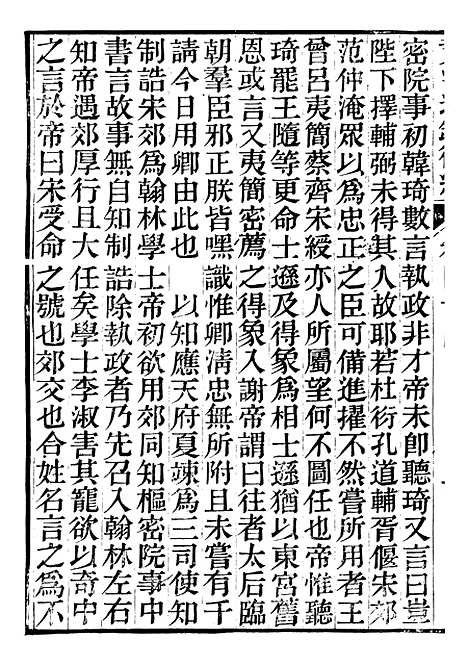 密院事初韓琦數言執政非才帝未卽聽琦又言曰豈
陛下擇輔弼未得其人故耶若杜衍孔道輔胥偃宋郊
范仲淹眾以爲忠正之臣可備進擢不然嘗所用者王
曾呂夷簡蔡齊宋綬亦人所屬望何不圖任也帝惟聽
琦罷王隨等更命士遜及得象爲相士遜猶以東宮舊
恩或言又夷簡密薦之得象入謝帝謂曰往者太后臨
朝羣臣邪正朕皆嘿識惟卿淸忠無所附且未嘗有干
請今日用卿由此也　以知應天府夏竦爲三司使知
制誥宋郊爲翰林學士帝初欲用郊同知樞密院事中
書言故事無自知制誥除執政者乃先召入翰林左右
知帝遇郊厚行且大任矣學士李淑害其寵欲以奇中
之言於帝曰宋受命之號也郊交也合姓名言之爲不